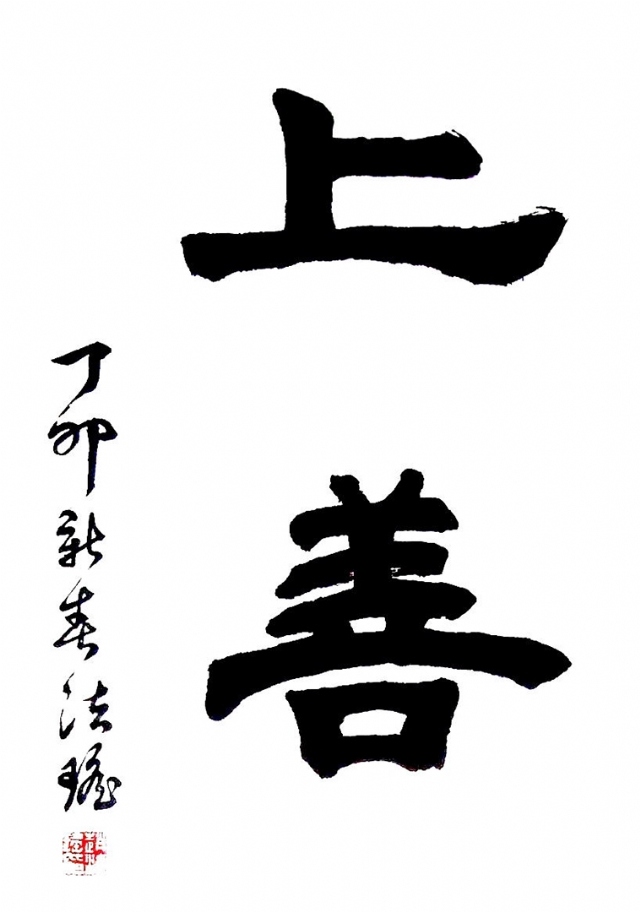 上善
丁卯新春法瑤